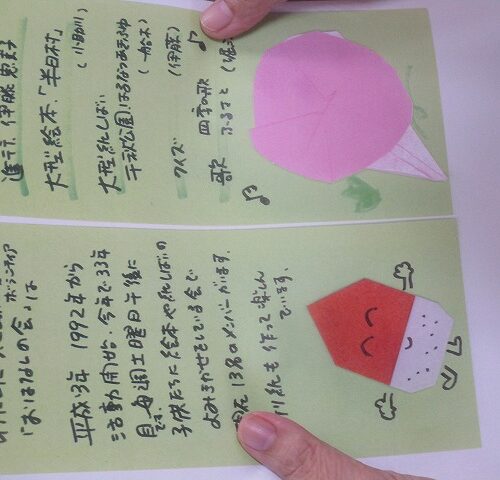 ボランティア
「おはなしの会」は
平成3年 1992年から
活動開始 今年で33年
目です。毎週土曜日午後に
子供たちに絵本や紙しばいの
よみきかせをしている会で
現在 13名のメンバーがいます。
紙も作って楽しん
でいます。
進行 伊藤 恵子
大型絵本「半日村」
(小田川)
大型紙しばい
千秋公園はるなつあきふゆ
(船木)
クイズ (伊藤)
歌 四季の歌 ♪
♪ ふるさと